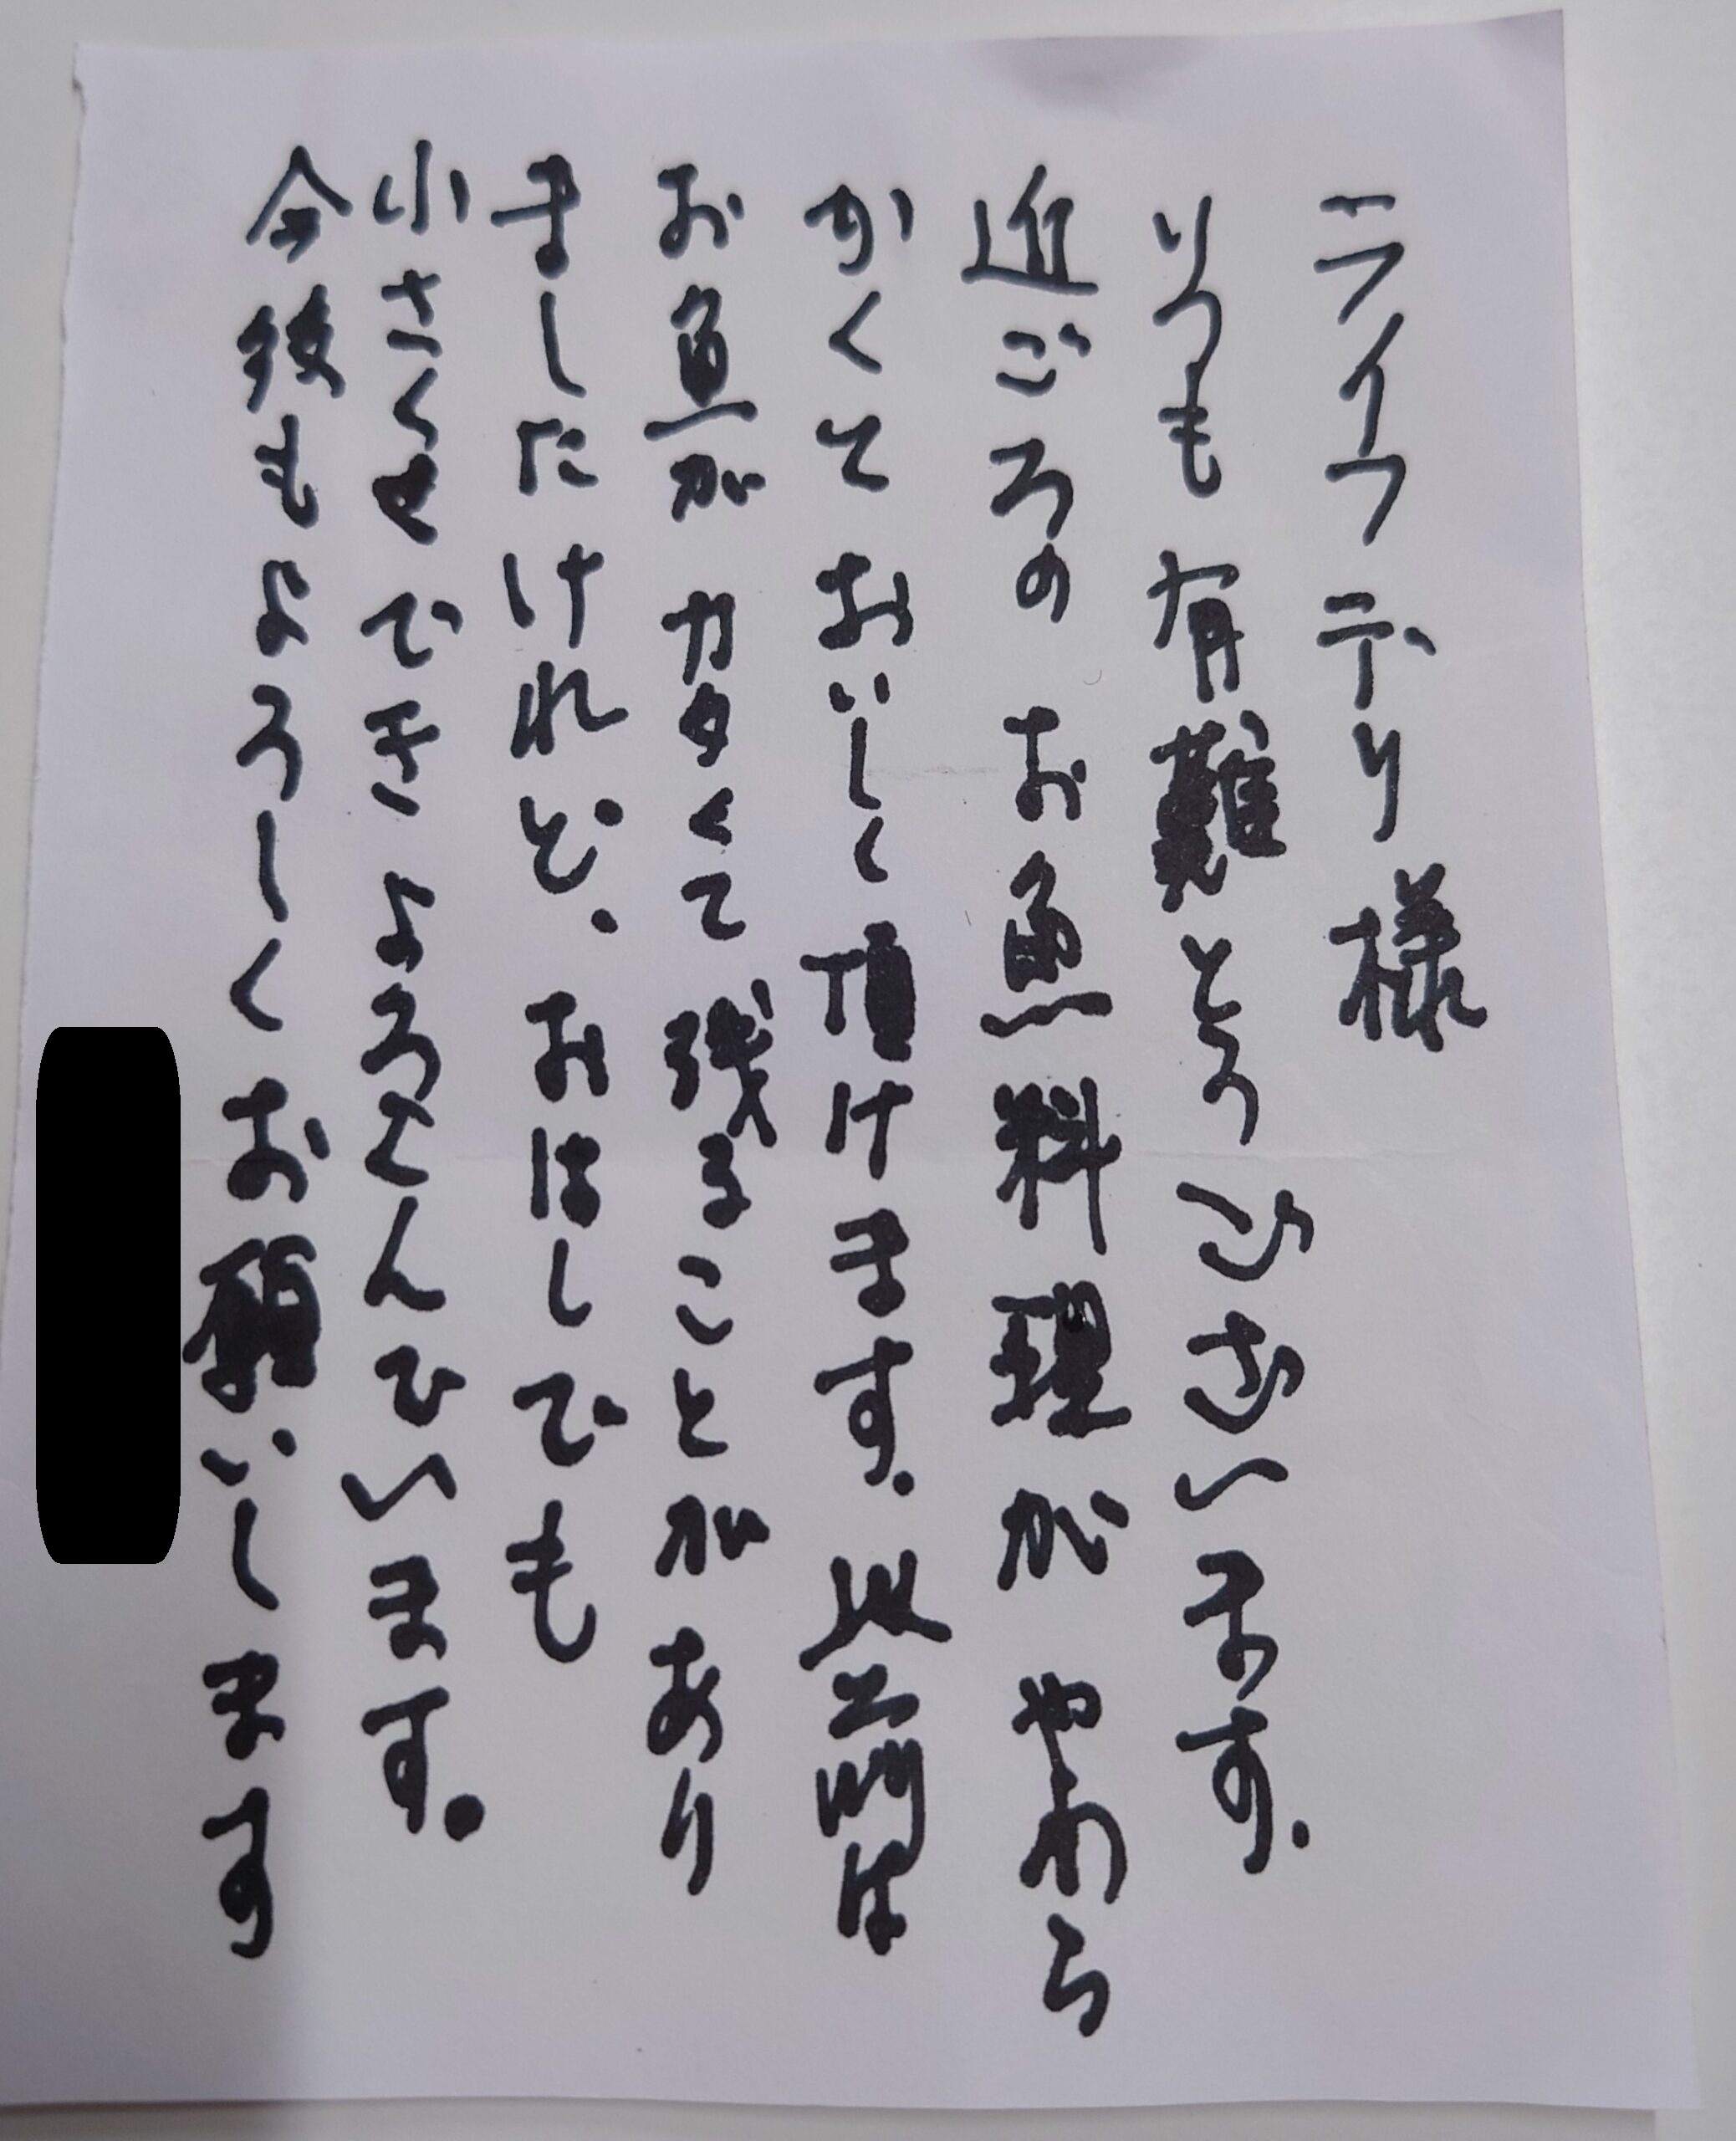 ライフデリ様
いつも有難とうございます.
近ごろの お魚料理が やわら
かくて おいしく頂けます. 以前は
お魚が カタくて 残ることが あり
ましたけれど. おはしでも
小さくせでき よろこんでいます。
今後もよろしくお願いします